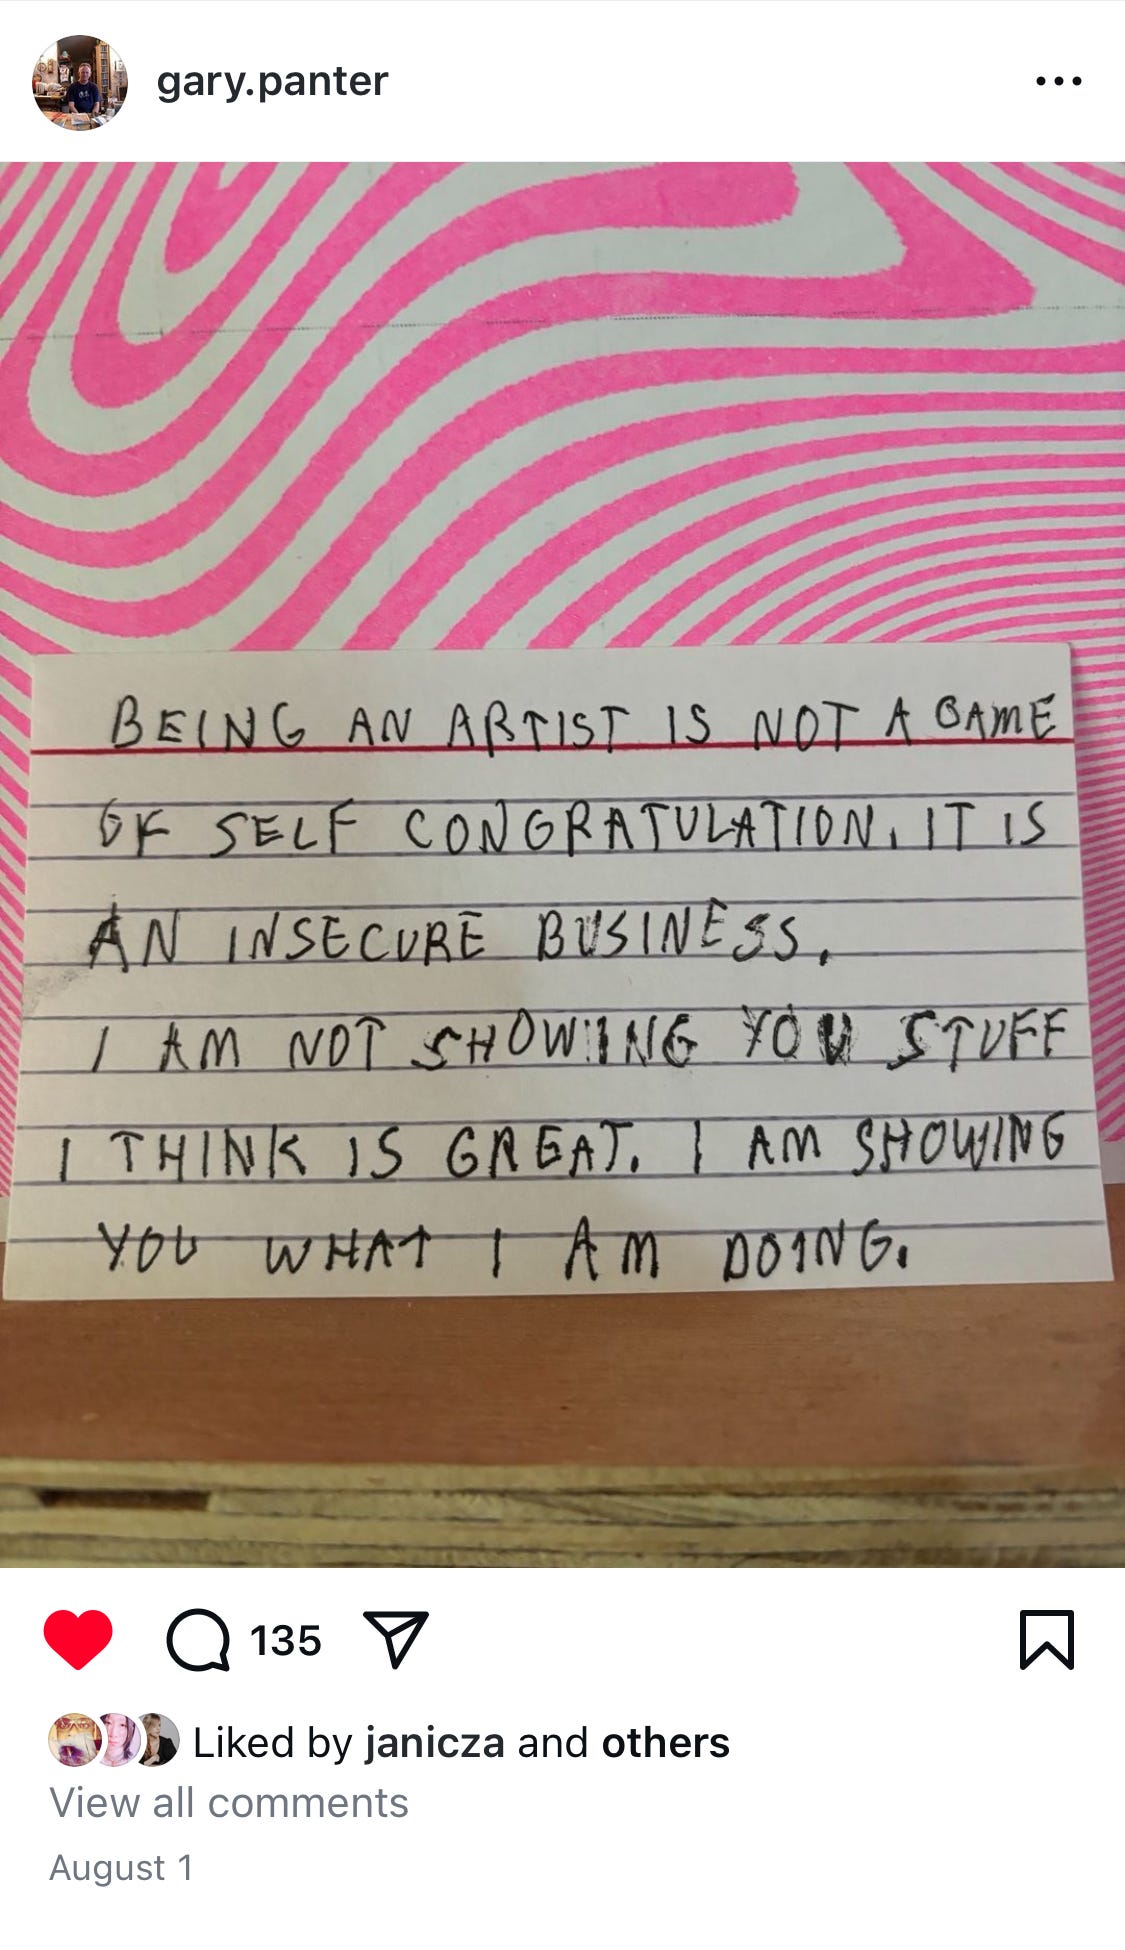 gary.panter
BEING AN ARTIST IS NOT A GAME
OF SELF CONGRATULATION. IT IS
AN INSECURE BUSINESS.
I AM NOT SHOWING YOU STUFF
I THINK IS GREAT. I AM SHOWING
YOU WHAT I AM DOING.
135
Liked by janicza and others
View all comments
August 1